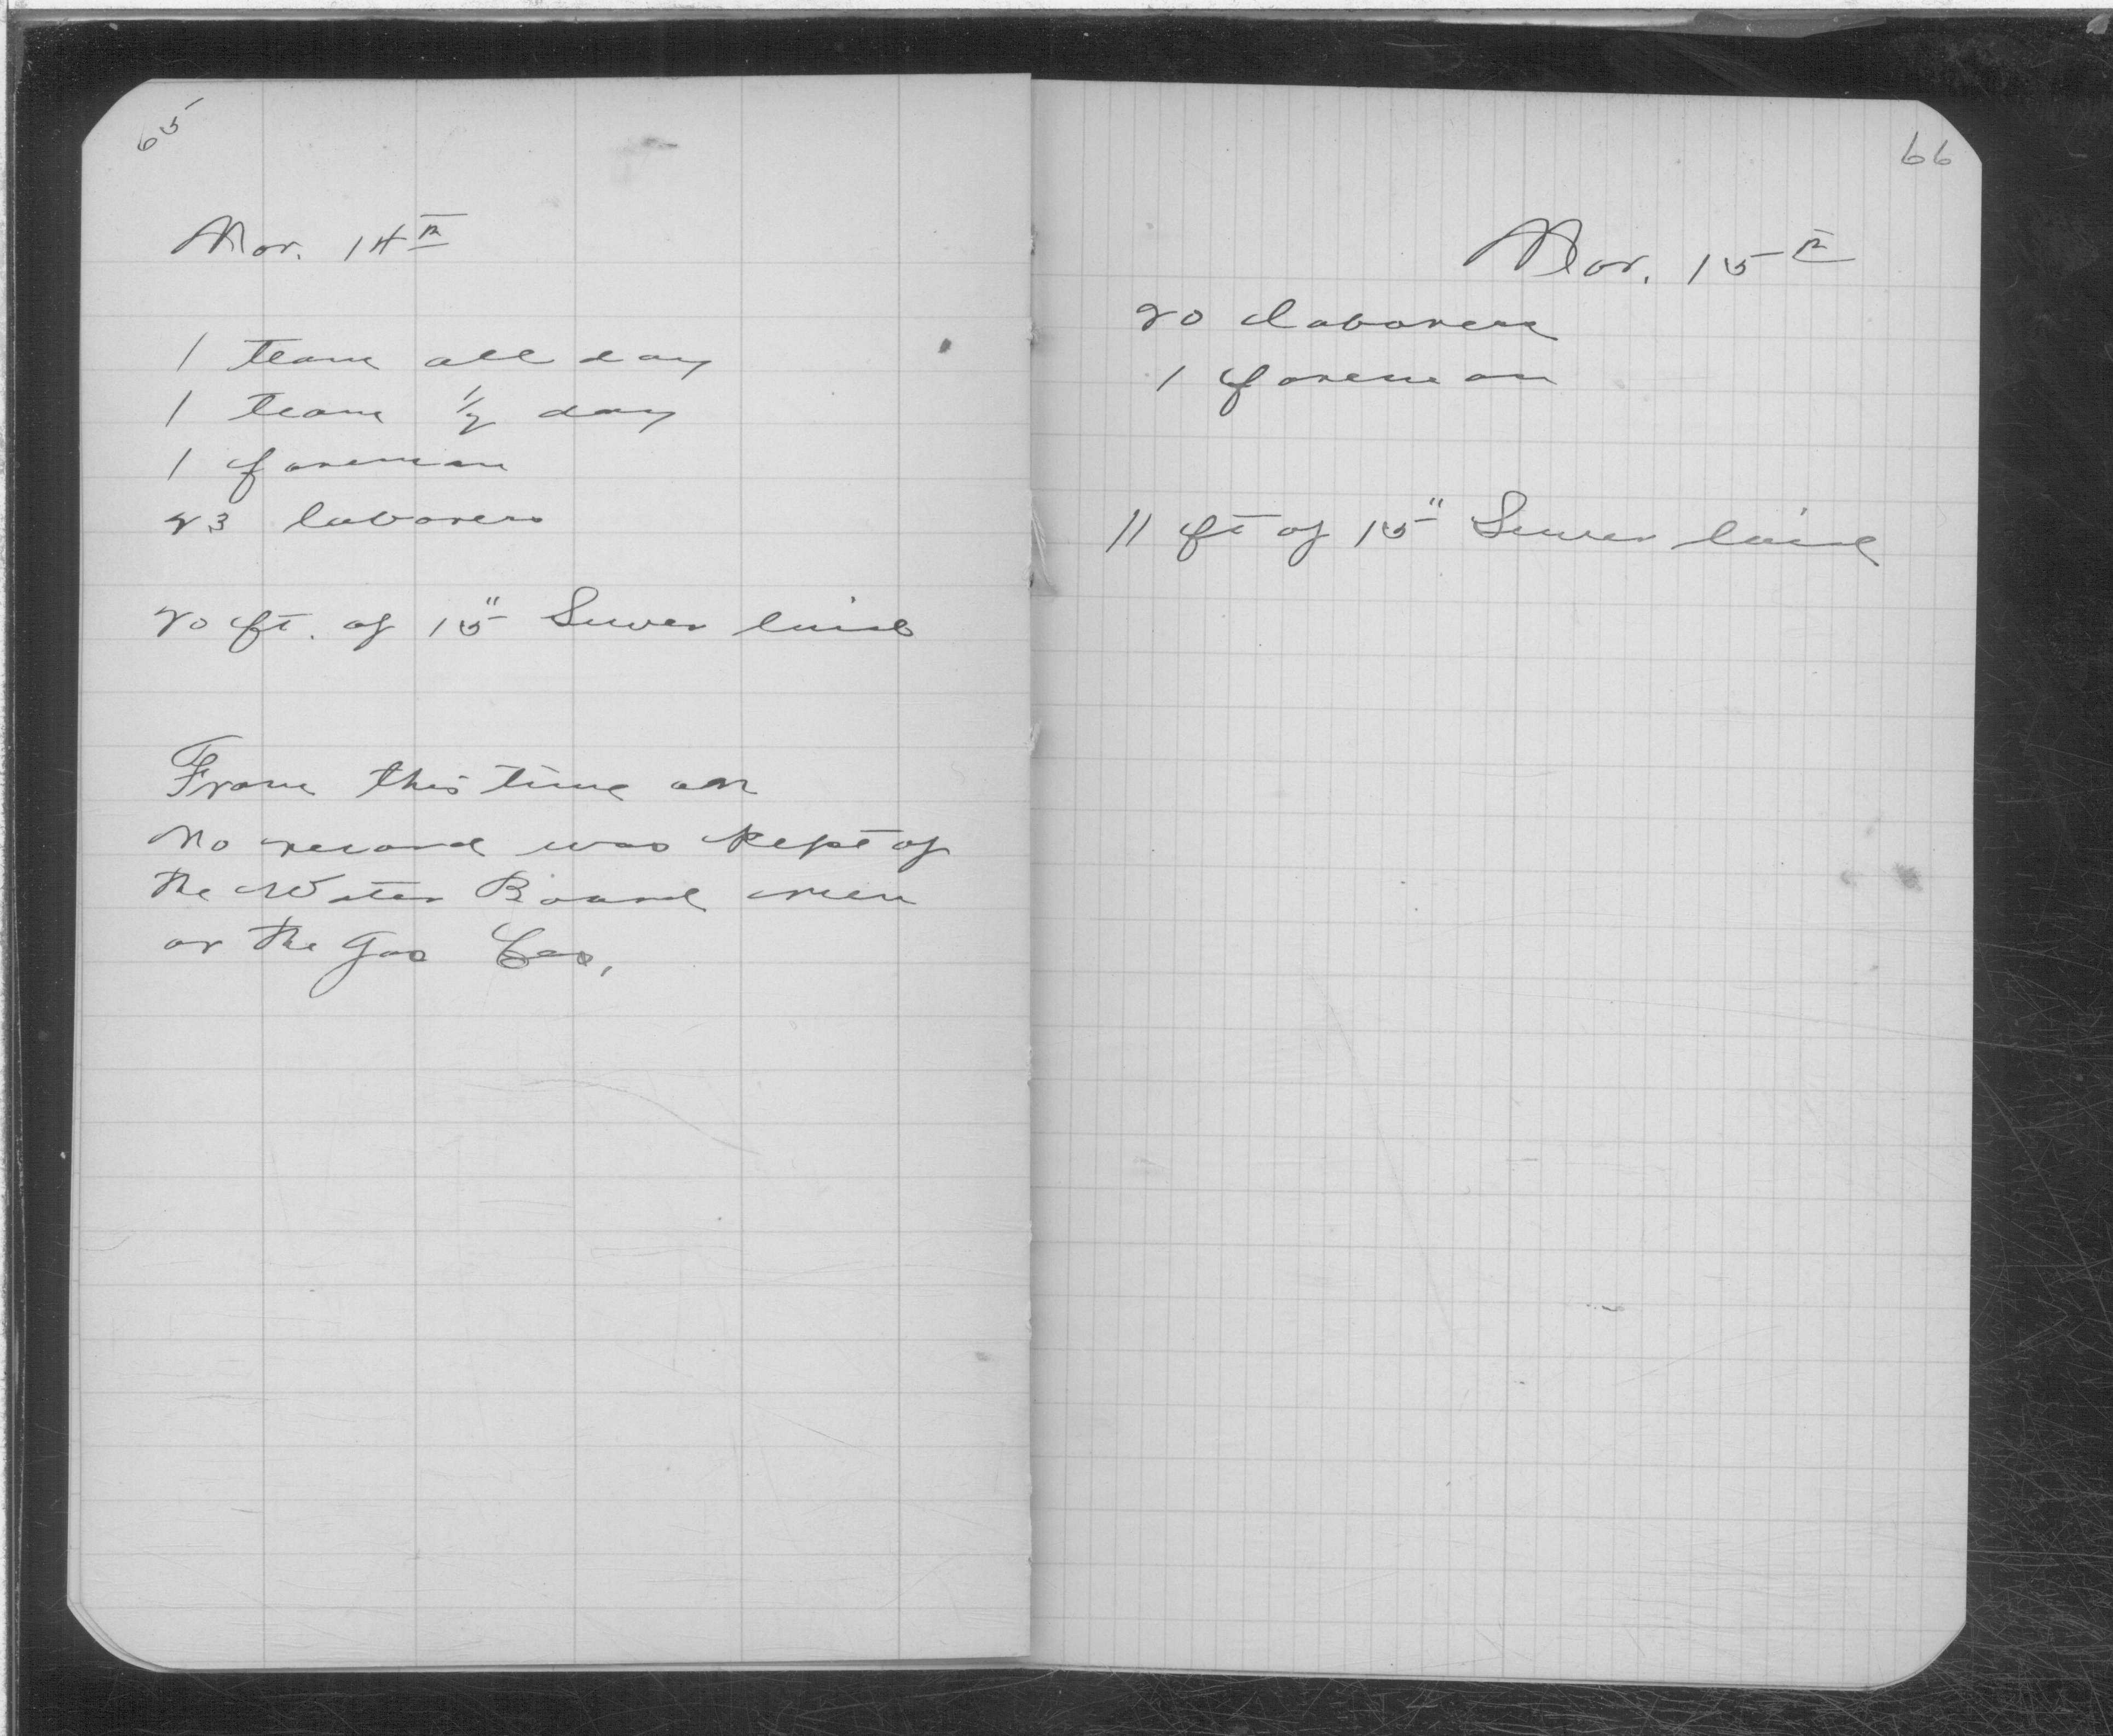 65
Mar. 14th
1 team all day
1 team 1/2 day
1 foreman
23 laborers
20 ft. of 15" Sewer laid
From this time on
no record was kept of
the Water Board men
or the Gas Cos.
66
Mar. 15th
20 laborers
1 foreman
11 ft of 15" Sewer laid